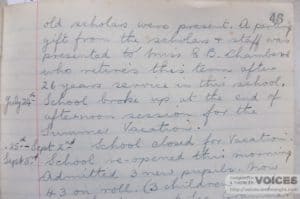 46
old scholars were present. A parting
gift from the scholars & staff was
presented to Miss R B. Chambers
who retires this term after
26 years service in this school.
July 24th School broke up at the end of
afternoon session for the
Summer Vacation.
25th - Sept 2nd School closed for Vacation
Sept School re-opened this morning
Admitted 3 new pupils. Now
43 on roll. (3 children
VOICES